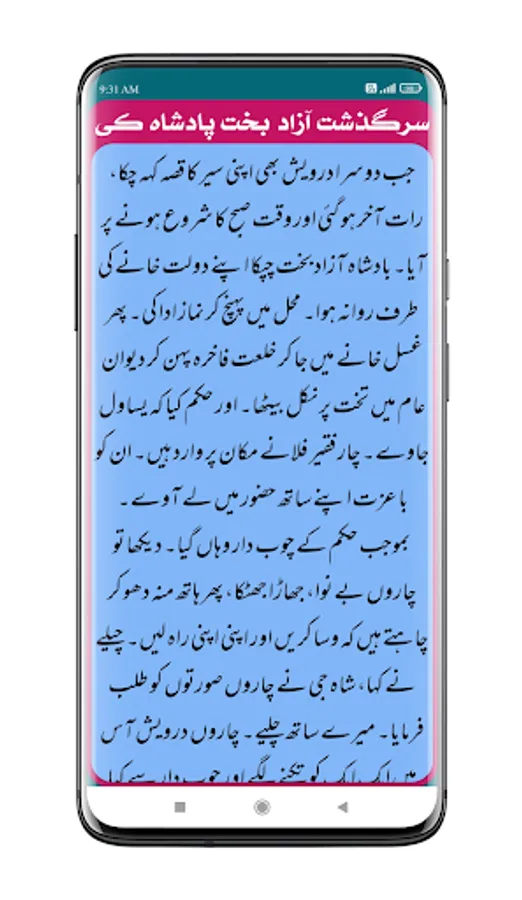 9:31 AM
سرگذشت آزاد بخت پادشاہ کی
جب دوسرا درویش بھی اپنی سیر کا قصہ کہہ چکا،
رات آخر ہو گئی اور وقت صبح کا شروع ہونے پر
آیا۔ بادشاہ آزاد بخت چپکا اپنے دولت خانے کی
طرف روانہ ہوا۔ محل میں پہنچ کر نماز ادا کی۔ پھر
غسل خانے میں جا کر خلعت فاخرہ پہن کر دیوان
عام میں تخت پر نکل بیٹھا۔ اور حکم کیا کہ یساول
جاوے۔ چار فقیر فلانے مکان پر وارد ہیں۔ ان کو
باعزت اپنے ساتھ حضور میں لے آوے۔
بموجب حکم کے چوب دار وہاں گیا۔ دیکھا تو
چاروں بے نوا، جھاڑا جھٹکا، پھر ہاتھ منہ دھو کر
چاہتے ہیں کہ وسا کریں اور اپنی اپنی راہ لیں۔ چیلے
نے کہا، شاہ جی نے چاروں صورتوں کو طلب
فرمایا۔ میرے ساتھ چلیے۔ چاروں درویش آس
میں ایک ایک کو تکنے لگے اور چوب دار سے کہا